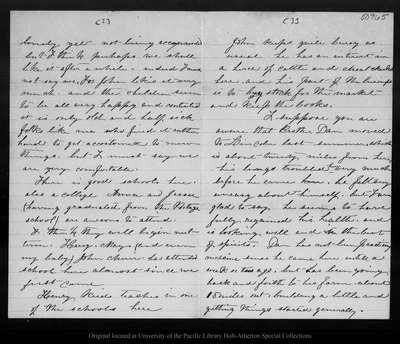 (2)
lonely yet not being accquainted
but I think perhaps we shall
like it after a while. indeed I must
not say we, For John likes it very
much and the children seem
to be all very happy and contented
it is only old and half sick
folks like me who find it rather
hard to get accustomed to new
things, but I must say we
are very comfortable.
There is good schools here.
also a college Anna and Jessie
(having graduated from the Portage
school) are anxious to attend
I think they will begin next
term. Harry, May, (and even
my baby) John Muir has attended
school here almost since we
first came
Harry Reid teaches in one
of the schools here
(3)
00965
John keeps quite busy as
usual he has an interest in
a herd of cattle and
here and his part of the business
is to buy stock for the market
and keep the books.
I suppose you are
aware that Brother Dan moved
to Lincoln last summer which
is about twenty miles from here
his lungs troubled him very much
before he came here, he felt very
uneasy about himself, but I am
glad to say, he seems to have
fully regained his health, and
is looking well and in the best
of spirits. Dan has not been practicing
medicine since he came here until a
week or two ago. but has been going
back and forth to his farm about
15 miles out, building a little and
getting things started generally.
Original located at University of the Pacific Library Holt-Atherton Special Collections